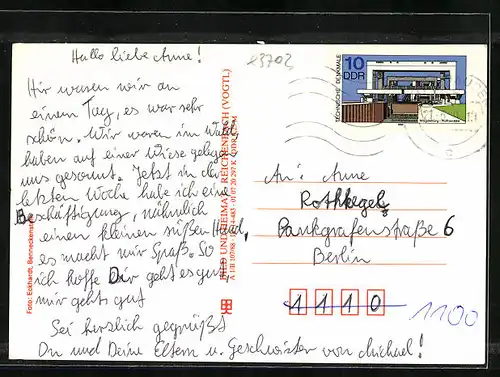 Hallo liebe Anne!
Hir waren wir an
einen Tag, es war sehr
schön. Wir waren im Wald,
haben auf einer Wiese gelegen
uns gesonnt. Jetzt in der
letzten Woche habe ich eine
Beschäftigung, nähmlich
einen kleinen süßen Hund,
es macht mir Spaß. So
ich hoffe Dir geht es gut,
mir gehts gut
Sei herzlich gegrüßt
Du und Deine Eltern u. Geschwister von Michael!
Foto: Eckhardt, Benneckenstein
BILD UND HEIMAT REICHENBACH (VOGTL)
A 1/B 107/88
£3702
TECHNISCHE DENKMALE
10
DDR
An: Anne
Rothkegel
Pankgrafenstraße 6
Berlin
1110 1100